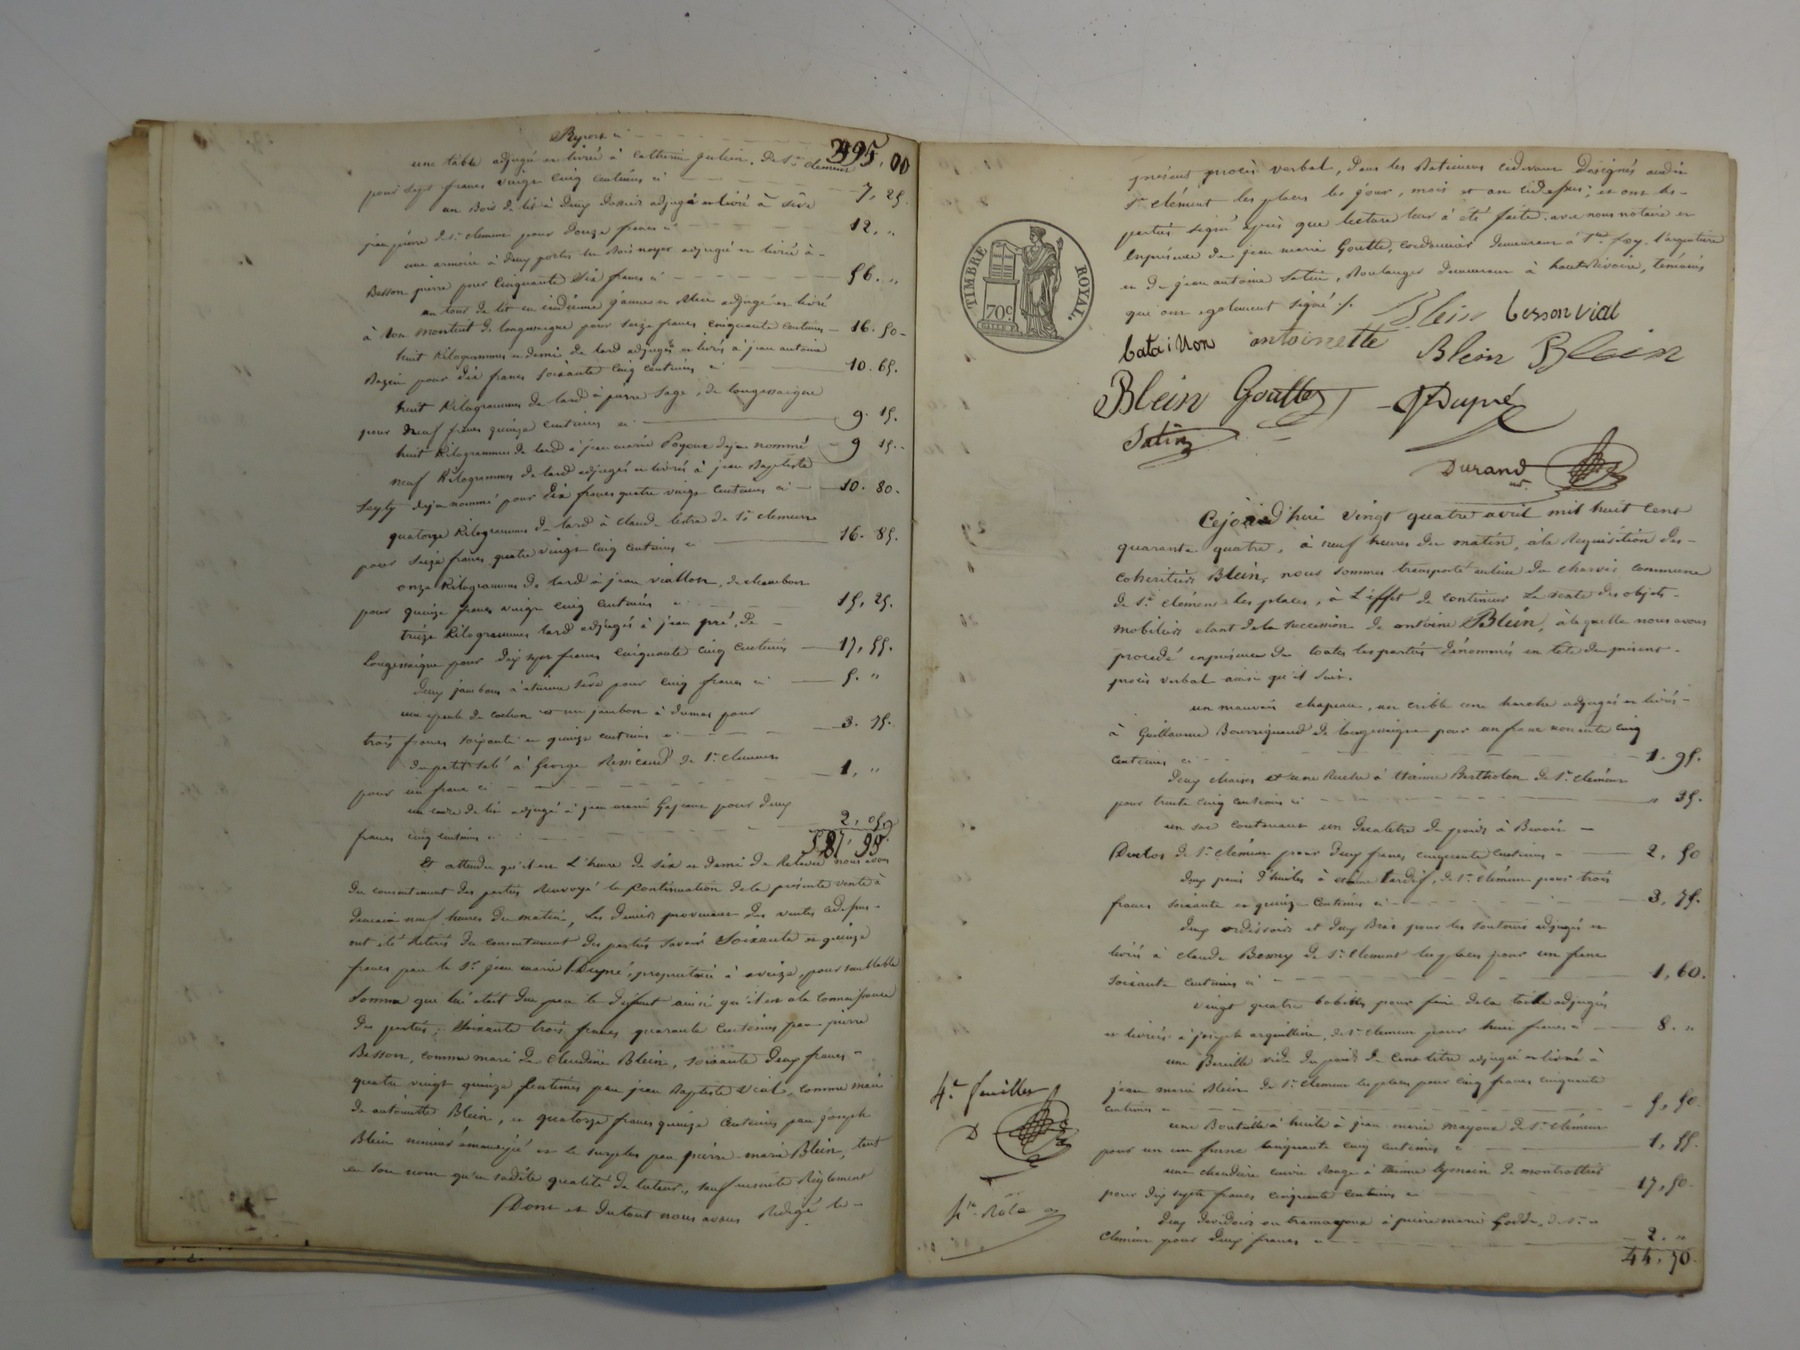 Report ci 395,00
une table adjugée et livrée à Catherine de St clement
pour sept francs vingt cinq centimes ci 7,25.
un Bois de lit à deux dossier adjugé et livré à
jean pierre de St clement pour douze francs ci 12,"
une armoire à deux portes en bois noyer adjugée et livrée à
Besson pierre pour cinquante six francs ci 56."
un tour de lit en indienne jaune et adjugé et livré
à de longessaigne pour seize francs cinquante centimes 16.50
huit Kilogrammes et demi de lard adjugés et livrés à jean antoine
pour dix francs soixante cinq centimes ci 10.65.
huit Kilogrammes de lard à pierre Sage, de longessaigne
pour neuf francs quinze centimes ci 9.15.
huit Kilogrammes de lard à jean marie déja nommé 9 15.
neuf Kilogrammes de lard adjugés et livrés à jean Baptiste
déja nommé pour dix francs quatre vingt centimes ci 10.80.
quatorze Kilogrammes de lard à claude de St clement
pour seize francs quatre vingt cinq centimes ci 16.85.
onze Kilogrammes de lard à jean viallon, de chambost
pour quinze francs vingt cinq centimes ci 15,25.
treize Kilogrammes lard adjugés à jean pré, de
Longessaigne pour dix sept francs cinquante cinq centimes 17,55.
deux jambons à étienne pour cinq francs ci 5."
une epaule de cochon et un jambon à dumas pour
trois francs soixante et quinze centimes ci 3.75.
du petit salé à George de St clement
pour un franc ci 1,"
un adjugé à jean marie pour deux
francs cinq centimes ci 2,05
587,95
Et attendu qu'il est L'heure de six et demi de Relevée nous avons
du consentement des parties Renvoyé la Continuation de la présente vente à
demain neuf heures du matin, Les deniers provenant des ventes cidessus
ont été Retirés du consentement des parties Savoir Soixante et quinze
francs par le Sr jean marie Dupré, propriétaire à aveize, pour semblable
Somme qui lui était due par le défunt ainsi qu'il est à la connaissance
des parties; Soixante trois francs quarante centimes par pierre
Besson, comme mari de Claudine Blein, soixante deux francs
quatre vingt quinze Centimes par jean Baptiste vial, comme mari
de antoinette Blein, et quatorze francs quinze Centimes par joseph
Blein mineur émancipé et le surplus par pierre marie Blein, tant
en son nom qu'en sadite qualité de tuteur, sauf ensuite Règlement
Dont et du tout nous avons Rédigé le
présent procès verbal, dans les Batiments cidevant désignés audit
St clément les places les jour, mois et an cidessus; et ont les
parties signé après que lecture leur a été faite avec nous notaire et
En présence de jean marie Goutte, cordonnier demeurant à Ste foy l'argentière
et de jean antoine Satin, Boulanger demeurant à hauterivoire, témoins
qui ont egalement signé ./.
TIMBRE ROYAL.
70c
Blein besson vial
bataillon antoinette Blein Blein
Blein Goutte Dupré
Satin
Durand
not.
Cejourd'hui vingt quatre avril mil huit cent
quarante quatre, à neuf heures du matin, à la Requisition des
cohéritiers Blein, nous sommes transporté au lieu du charvis commune
de St clément les places, à L'effet de continuer La vente des objets
mobiliers etant de la succession de antoine Blein, à laquelle nous avons
procédé en présence de toutes les parties dénommés en tête du présent
procès verbal ainsi qu'il suit.
un mauvais chapeau, un crible une hache adjugés et livrés
à Guillaume de longessaigne pour un franc nonante cinq
Centimes ci 1.95.
deux chaises et une Ruche à étienne Bertholon de St clément
pour trente cinq centimes ci " 35.
un sac contenant un décalitre de pois à Benoit
de St clément pour deux francs cinquante Centimes 2,50
deux à tardif, de St clément pour trois
francs soixante et quinze Centimes ci 3,75.
deux et deux adjugés et
livrés à claude de St clement les places pour un franc
soixante centimes ci 1,60.
vingt quatre pour faire de la toile adjugés
et livrées à joseph de St clement pour huit francs ci 8."
une Bareille vide du poids de Cent litre adjugée et livrée à
jean marie Blein de St clement les places pour cinq francs cinquante
centimes ci 5,50
une Bouteille à huile à jean marie mayoux de St clément
pour un franc cinquante cinq centimes ci 1,55.
une chaudiere cuivre Rouge à étienne de montrottier
pour dix sept francs cinquante centimes ci 17,50.
deux devidoirs ou à pierre marie de St
Clément pour deux francs ci 2."
44.70
4e feuillet
D